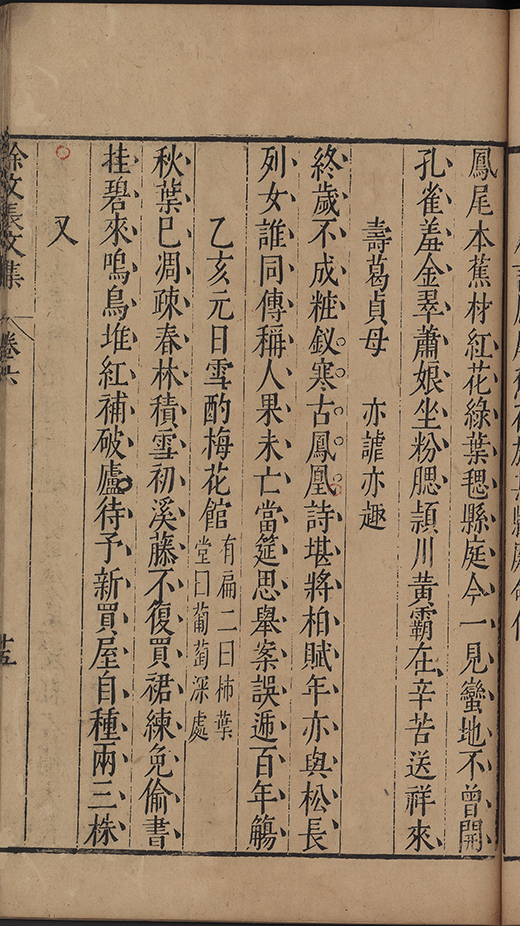 鳳尾本蕉材紅花綠葉毸縣庭今一見蠻地不曾開
孔雀羞金翠蕭娘坐粉腮頴川黃霸在辛苦送祥來
壽葛貞母　亦謔亦趣
終歲不成粧釵寒古鳳凰詩堪將柏賦年亦與松長
列女誰同傳稱人果未亡當筵思舉案誤遞百年觴
乙亥元日雪酌梅花館
有扁二曰柿葉
堂曰葡萄深處
秋葉已凋疎春林積雪初溪藤不復買裙練免偷書
挂碧來鳴鳥堆紅補破廬待予新買屋自種兩三株
又
徐文長文集
卷六
十五